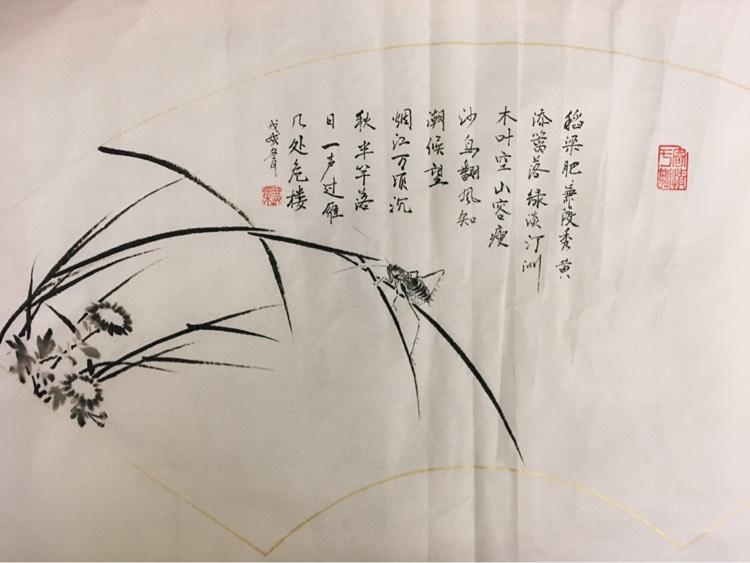 稻梁肥蒹葭秀黄
添篱落绿淡汀洲
木叶空山容瘦
沙鸟翻风知
潮候望
烟江万顷沉
秋半竿落
日一声过雁
几处危楼
戊戌